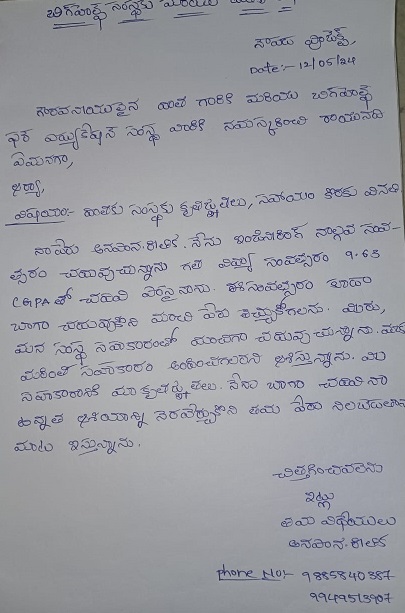 బిగ్‌హెల్ప్ సంస్థకు మరియు
సాయి ప్రియ,
Date:- 12/05/24
గౌరవనీయులైన దాత గారికి మరియు బిగ్‌హెల్ప్
ఫర్ ఎడ్యుకేషన్ సంస్థ వారికి నమస్కరించి రాయునది
ఏమనగా,
అయ్యా,
విషయం:- దాతకు సంస్థకు కృతజ్ఞతలు, సహాయం కొరకు వినతి
నా పేరు అనపాన. నేను ఇంజనీరింగ్ నాల్గవ సంవ-
త్సరం చదువుచున్నాను గత విద్యా సంవత్సరం 9.63
CGPA తో చదివి నాను. ఈ సంవత్సరం కూడా
బాగా చదువుకొని మంచి పేరు తెచ్చుకోగలను. మీరు,
మన సంస్థ సహకారంతో బాగా చదువుచున్నాను. మాకు
మరింత సహకారం అందించగలరని ఆశిస్తున్నాను. మీ
సహకారానికి మా కృతజ్ఞతలు. నేను బాగా చదివి నా
ఉన్నత ఆశయాన్ని నెరవేర్చుకొని తమ పేరు నిలబెడతానని
మాట ఇస్తున్నాను.
చిత్తగించవలెను
ఇట్లు
తమ విధేయులు
అనపాన.
phone No:- 9885840387
9949513907